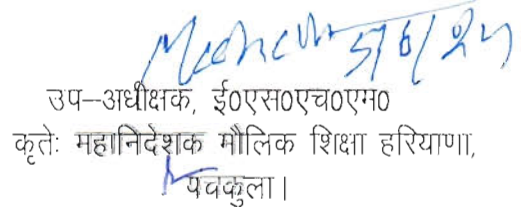 5/6/24
उप–अधीक्षक, ई०एस०एच०एम०
कृतेः महानिदेशक मौलिक शिक्षा हरियाणा,
पंचकुला।